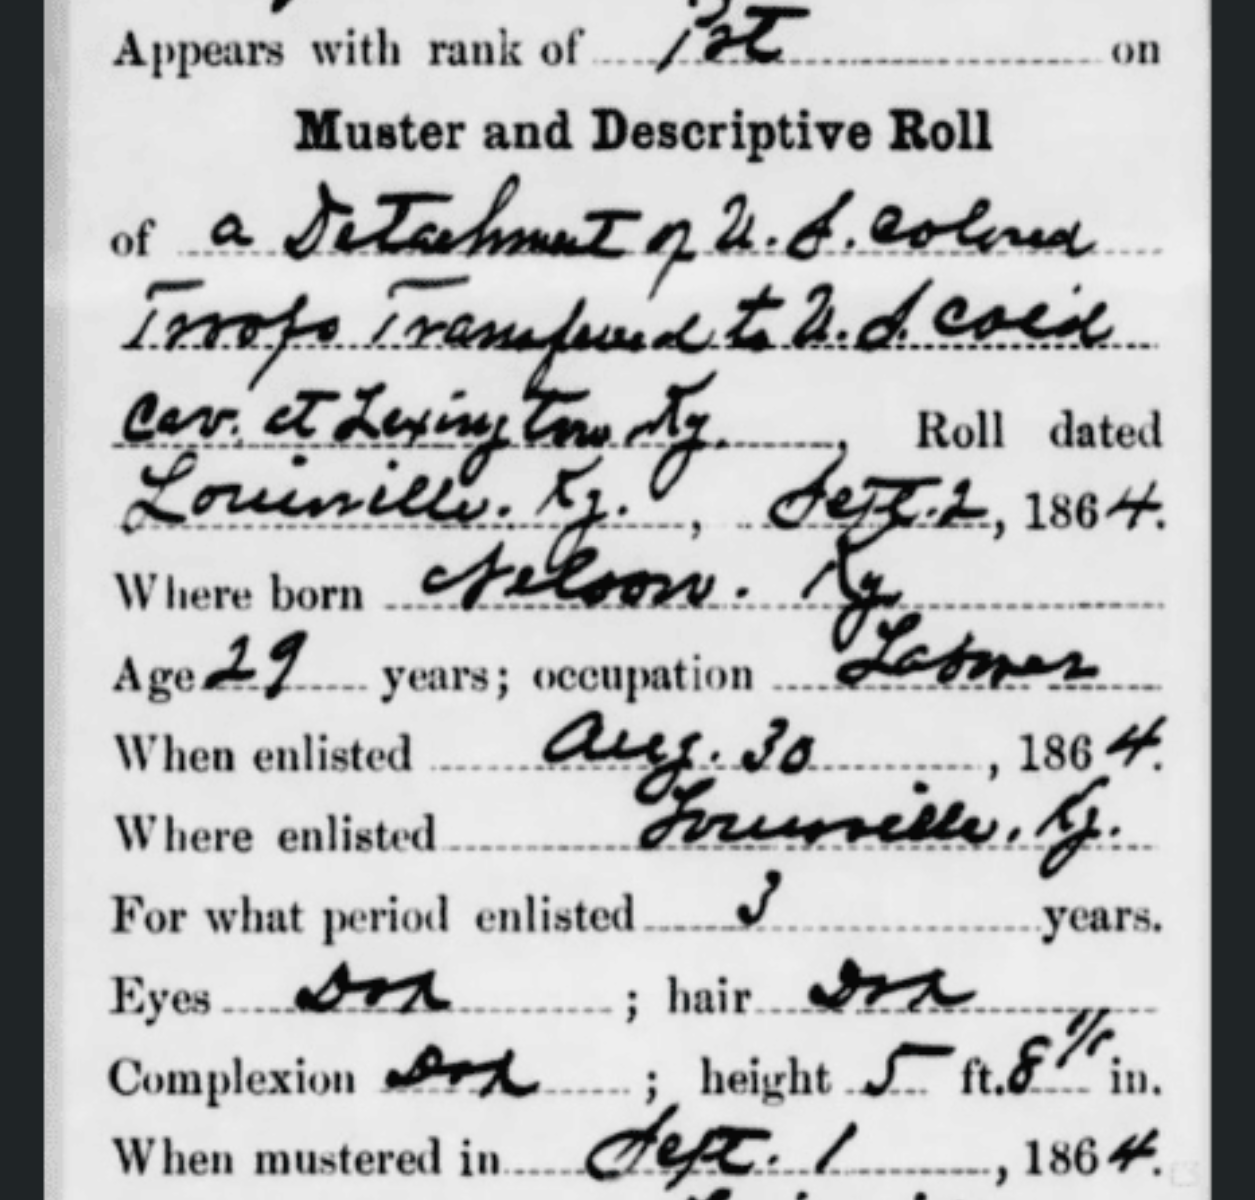 Appears with rank of Pvt on
Muster and Descriptive Roll
of a Detachment of U. S. Colored
Troops Transferred to U. S. Col'd
Cav. at Lexington Ky. , Roll dated
Louisville. Ky. , Sept. 2, 1864.
Where born Nelson. Ky
Age 29 years; occupation Laborer
When enlisted Aug. 30, 1864.
Where enlisted Louisville. Ky.
For what period enlisted 3 years.
Eyes ; hair
Complexion ; height 5 ft. 8 in.
When mustered in Sept. 1, 1864.